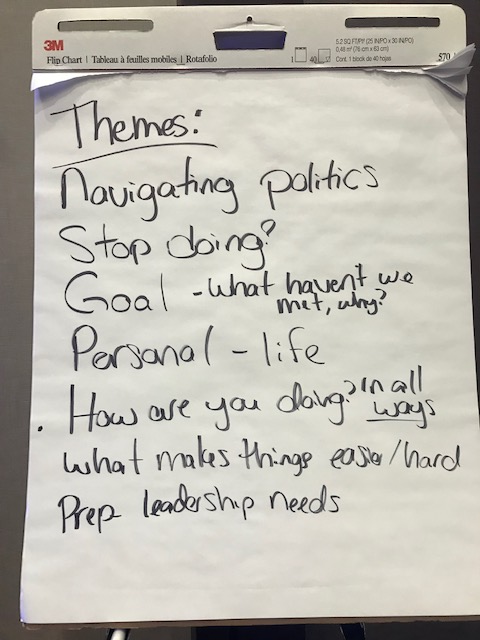 3M
Flip Chart | Tableau à feuilles mobiles | Rotafolio
5.2 SQ FT/PI² (25 IN/PO x 30 IN/PO)
0,48 m² (76 cm x 63 cm)
Cont. 1 block de 40 hojas
1 40
570
Themes:
Navigating politics
Stop doing?
Goal - What haven't we
met, why?
Personal - life
• How are you doing? in all
ways
What makes things easier/hard
Prep leadership needs